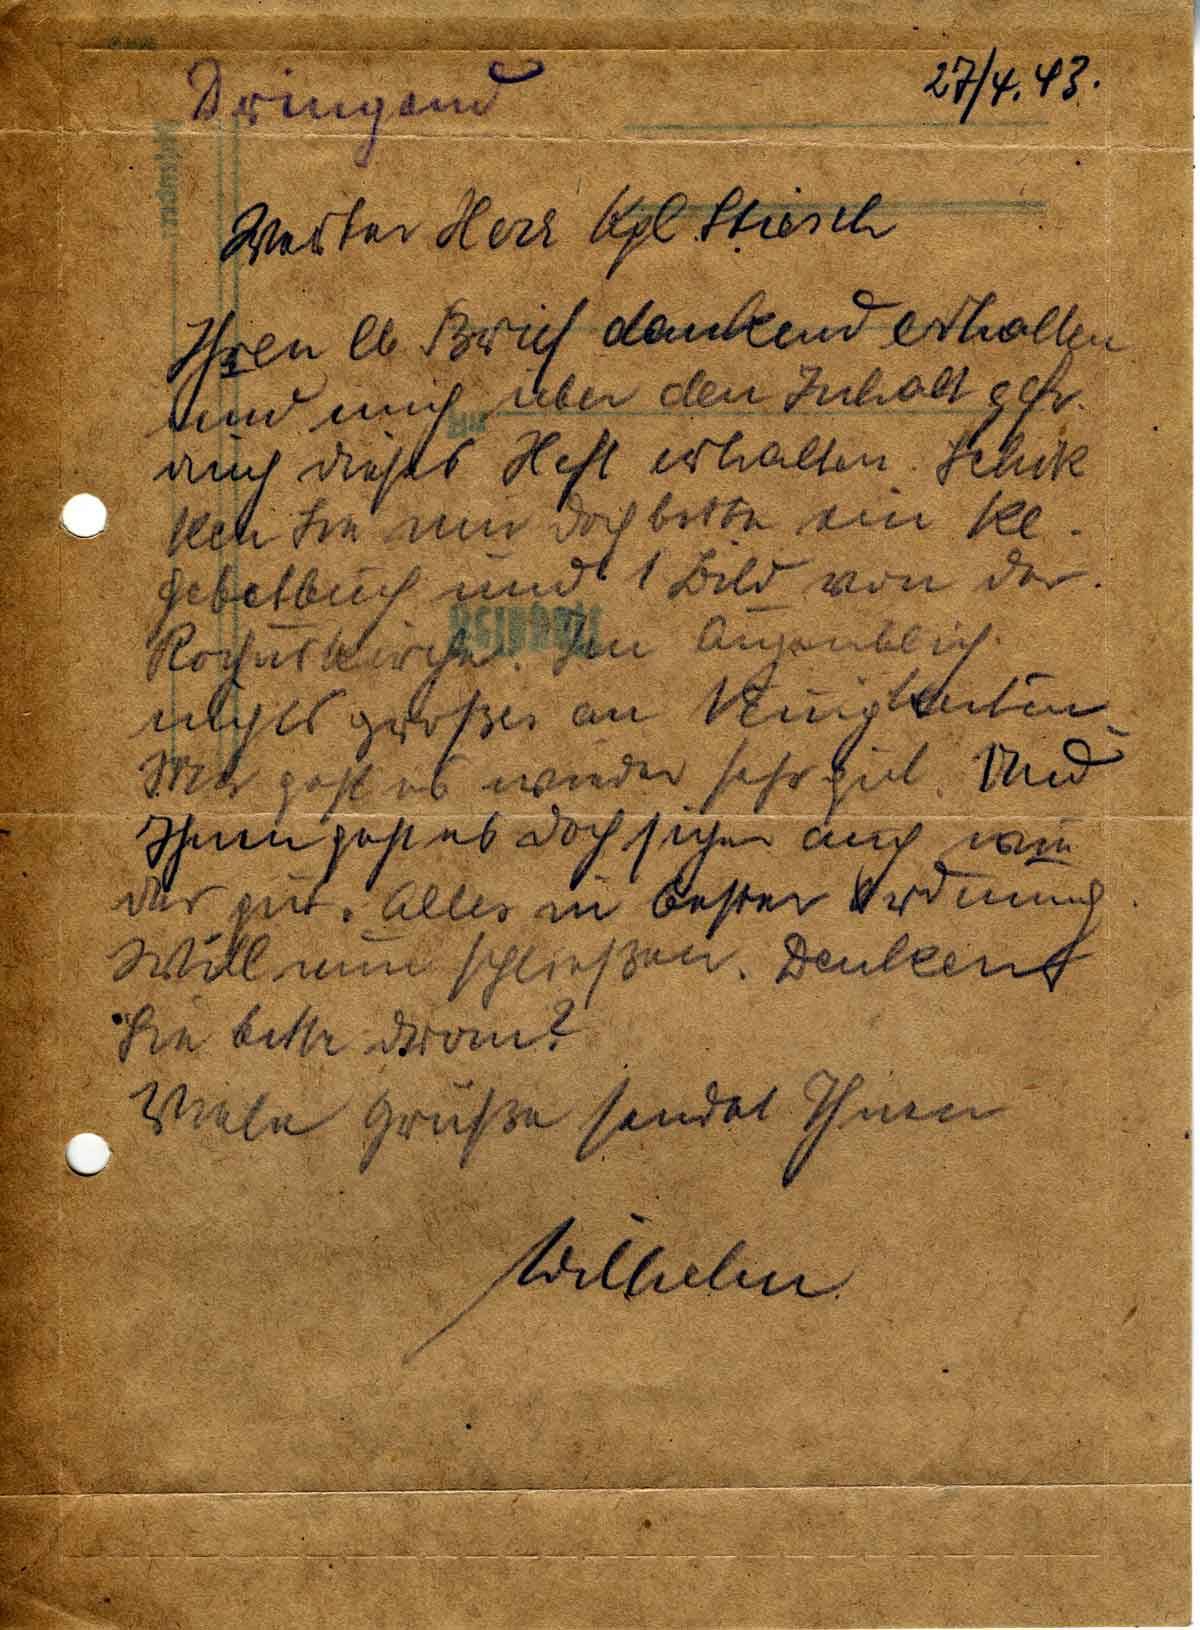 Dringend
27/4.43.
Werter Herr Kpl. Stiesch
Ihren lb Brief dankend erhalten
und mich über den Inhalt gefr.
auch dieses Heft erhalten. Schik
ken Sie mir doch bitte ein kl.
Gebetbuch und 1 Bild von der
Rochuskirche. Im Augenblick
nichts großes an Neuigkeiten.
Mir geht es wieder sehr gut. Und
Ihnen geht es doch sicher auch wie
der gut. Alles in bester Ordnung
Will nun schließen. Denken
Sie bitte dran?
Viele Grüße sendet Ihnen
Wilhelm